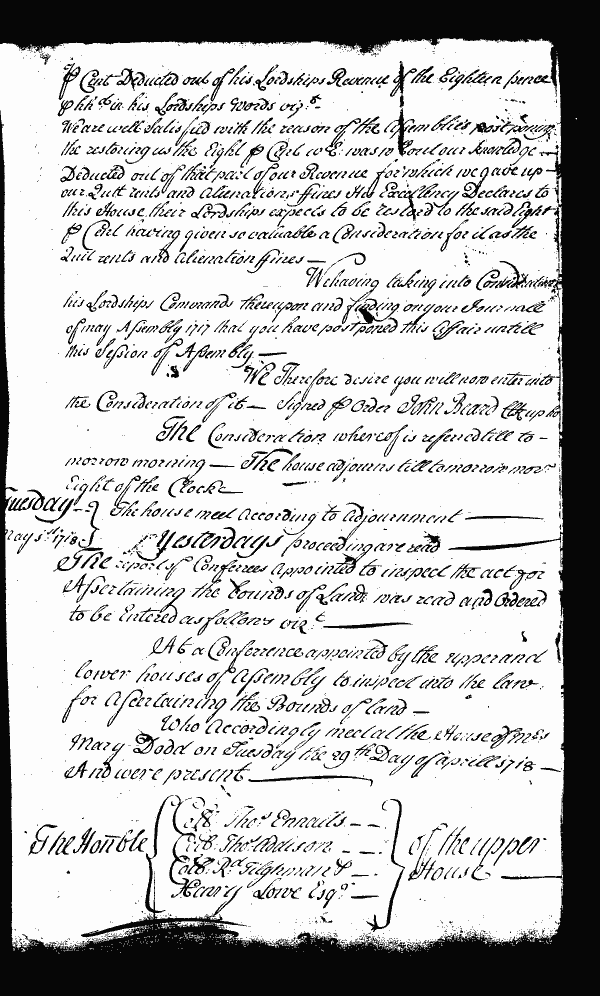 ⅌ Cent Deducted out of his Lordships Revenue of the Eighteen pence
⅌ hhd in his Lordships Words viz.t
We are well satisfied with the reason of the Assemblies postponing
the restoring us the Eight ⅌ Cent wch was without our knowledge
Deducted out of that part of our Revenue for which we gave up
our Quitt rents and alienations ffines His Excellency Declares to
this House, their Lordships expects to be restord to the said Eight
⅌ Cent having given so valuable a Consideration for it as the
Quit rents and alienation ffines —
We having taking into Consideration
his Lordships Commands thereupon and finding on your Journall
of may Assembly 1717 that you have postponed this affair untill
this Session of Assembly —
We Therefore desire you will now enter into
the Consideration of it — Signed ⅌ Order John Beard Clk up ho
The Consideration whereof is referred till to-
morrow morning — The house adjourns till tomorrow morng
Eight of the Clock —
Tuesday - } The house meet according to adjournment —
May 5th 1718 } Yesterdays proceeding are read —
The report of Conferrees appointed to inspect the act for
Assertaining the bounds of Land, was read and Ordered
to be Entered as follows vizt —
At a Conferrence appointed by the upper and
lower houses of assembly to inspect into the law
for Ascertaining the Bounds of land —
Who Accordingly mett at the House of mrs
Mary Dodd on Tuesday the 29th Day of aprill 1718 —
And were present —
Collo Thos Ennalls —
The Honble { Collo Tho Addison — } of the upper
Collo Rd Tilghman & — House —
Henry Lowe Esqr —